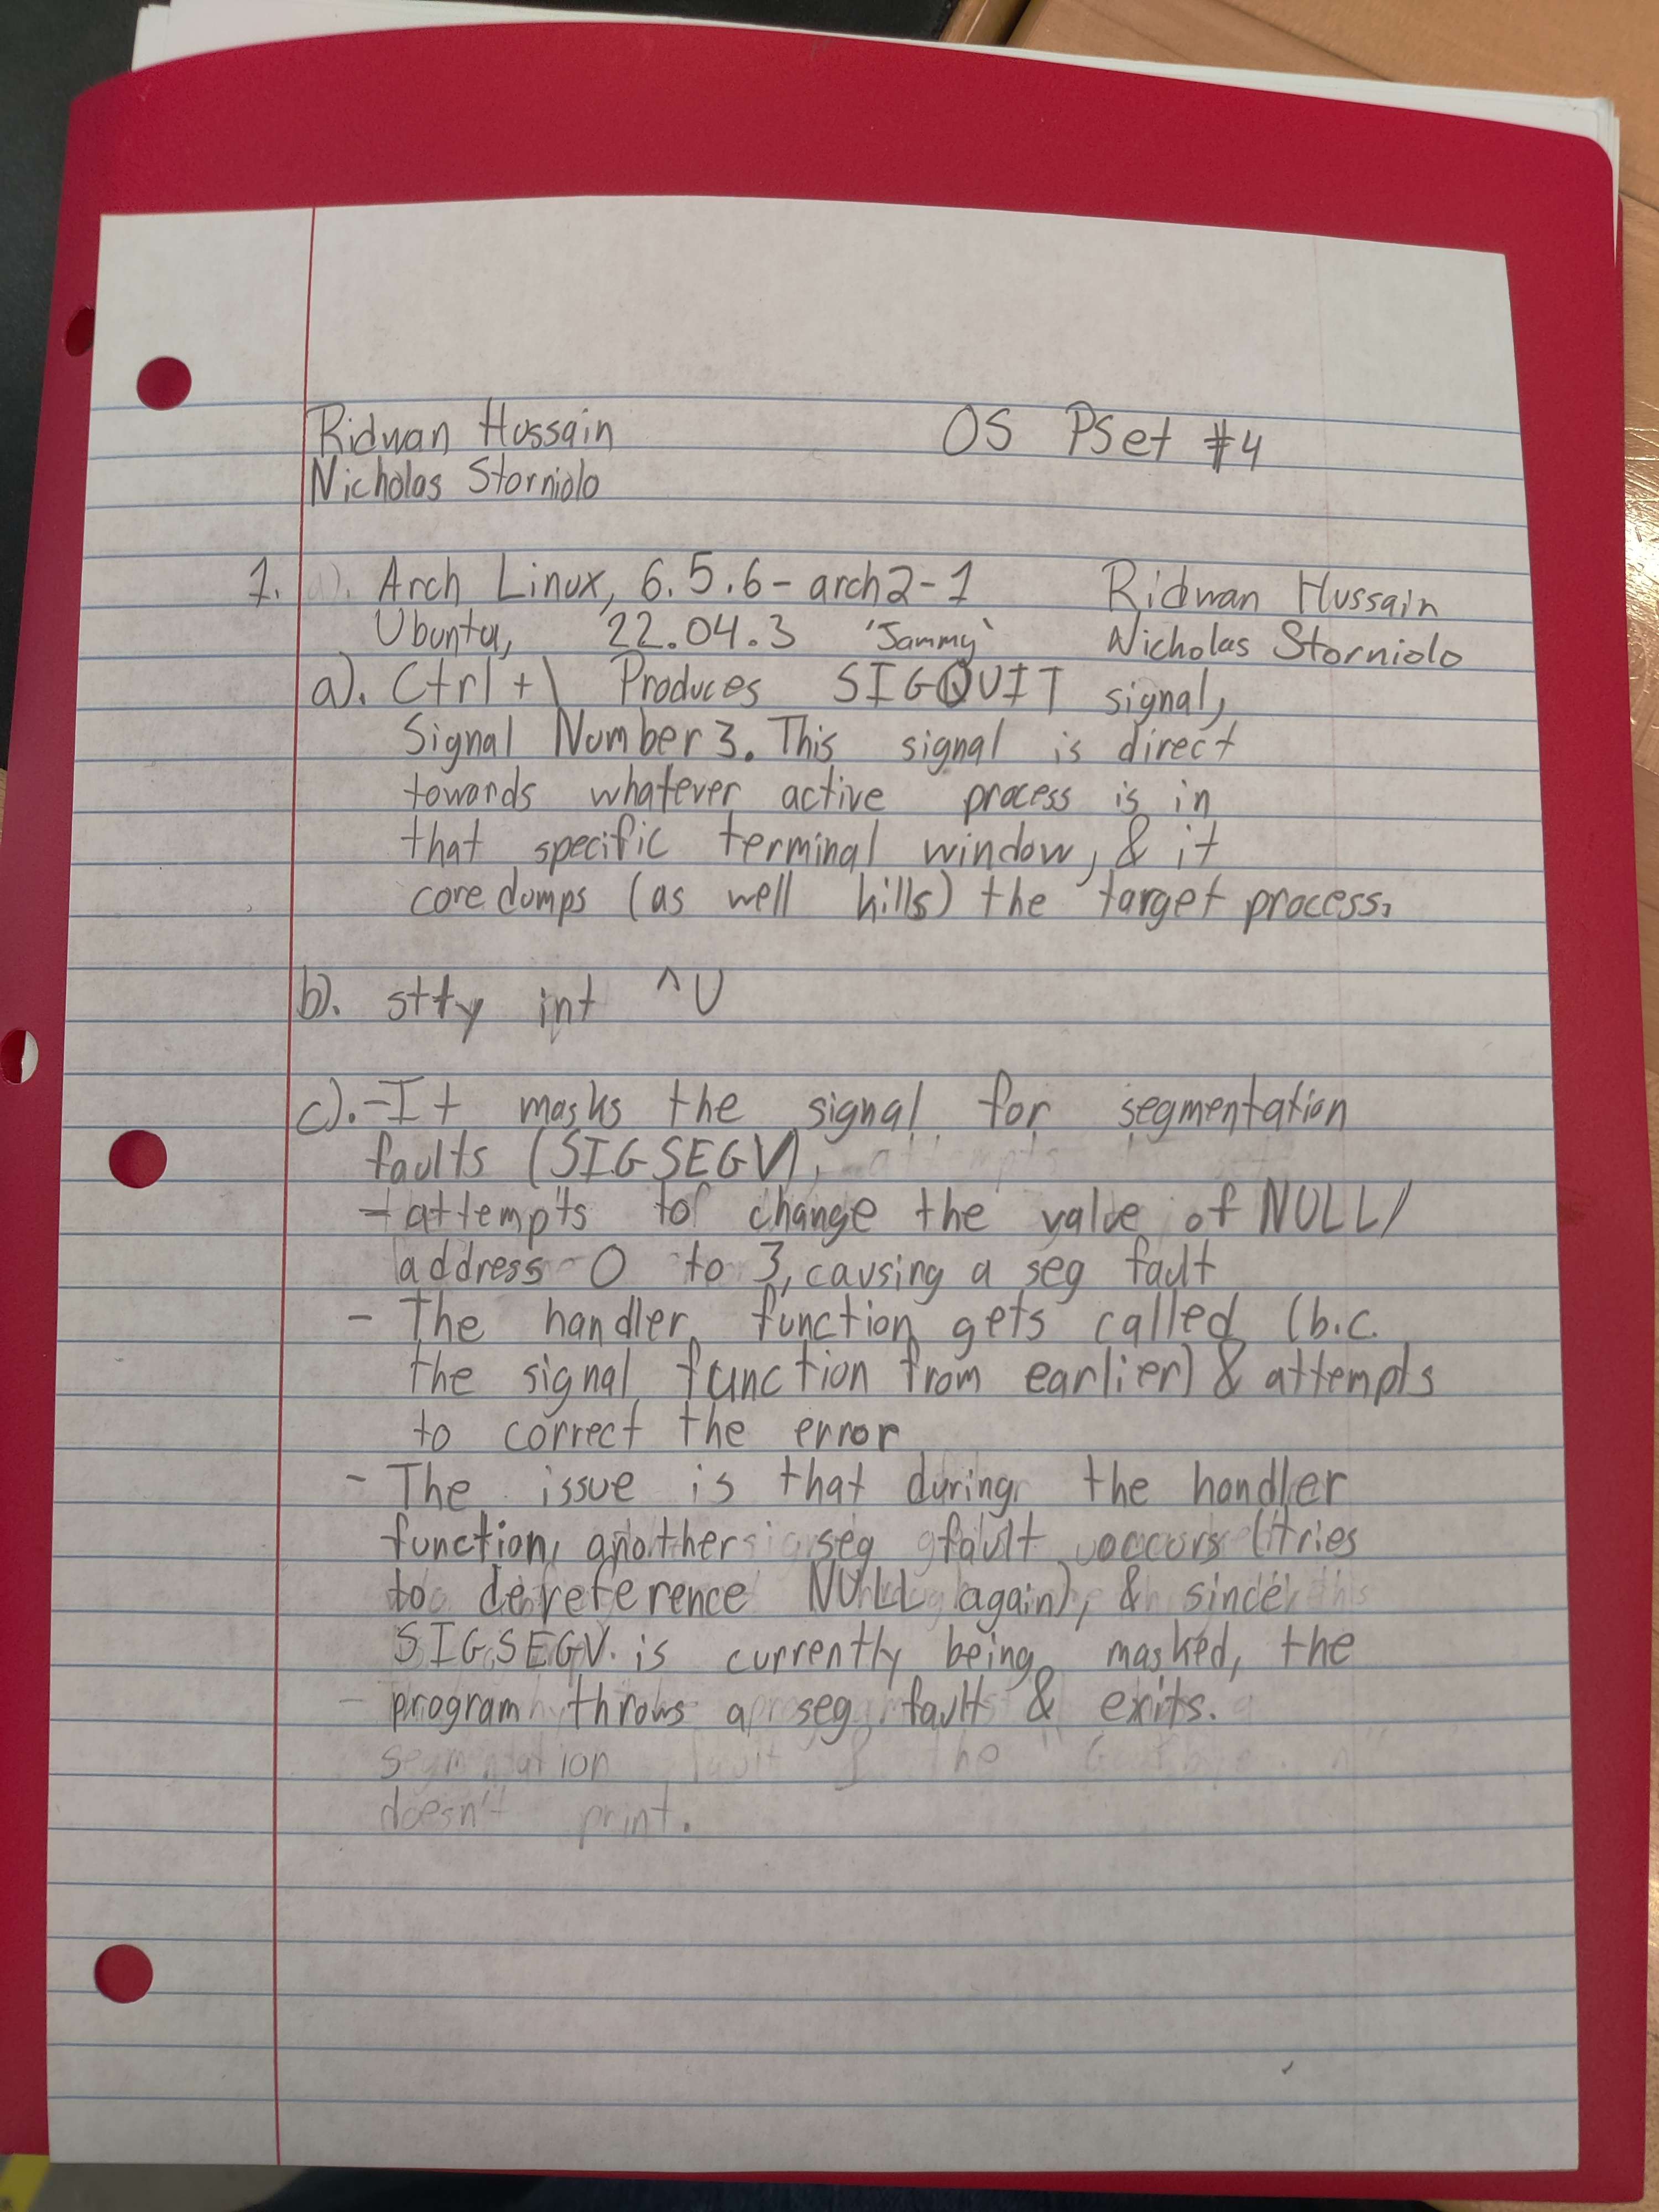 Ridwan Hussain OS PSet #4
Nicholas Storniolo
1. a). Arch Linux, 6.5.6-arch2-1 Ridwan Hussain
Ubuntu, 22.04.3 'Jammy' Nicholas Storniolo
a). Ctrl+\ Produces SIGQUIT signal,
Signal Number 3. This signal is direct
towards whatever active process is in
that specific terminal window, & it
core dumps (as well kills) the target process.
b). stty int ^U
c). -It masks the signal for segmentation
faults (SIGSEGV),
- attempts to change the value of NULL/
address 0 to 3, causing a seg fault
- The handler function gets called (b.c.
the signal function from earlier) & attempts
to correct the error
- The issue is that during the handler
function, another seg fault occurs (tries
to dereference NULL again), & since
SIGSEGV is currently being masked, the
- program throws a seg fault & exits.
segmentation fault & the
doesn't print.